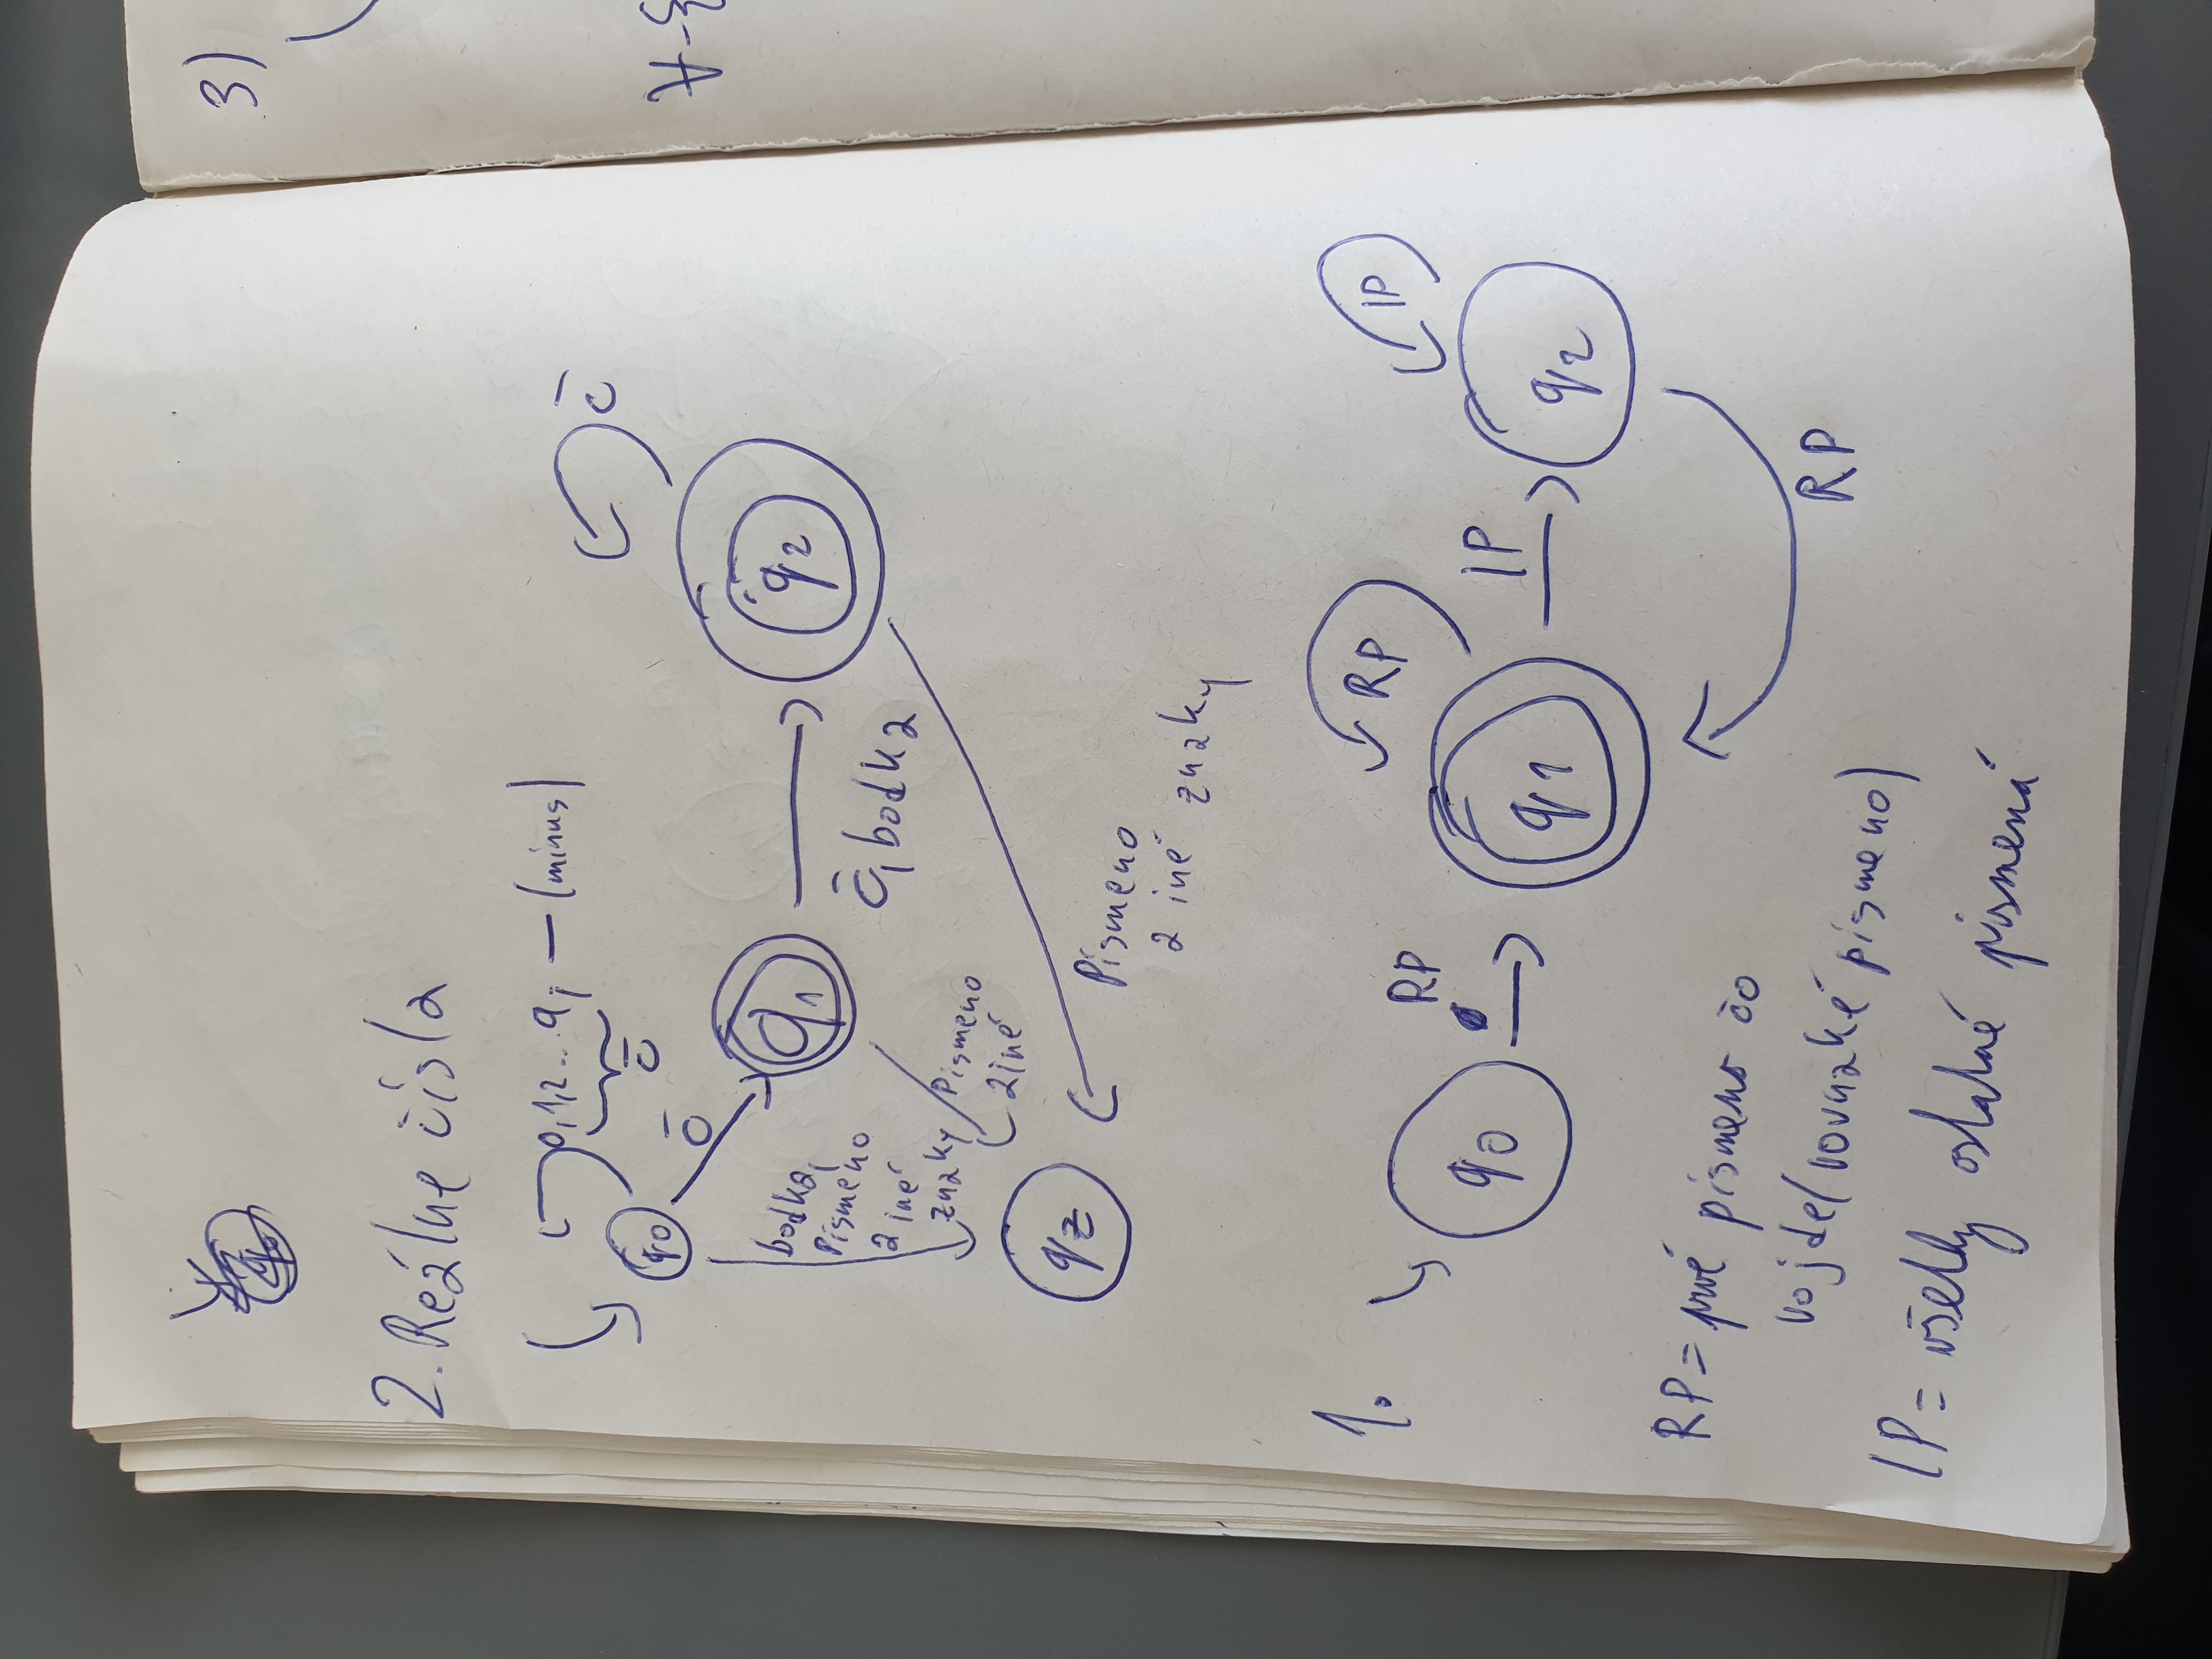 2. Reálne čísla
0,1,2...9, — (mínus)
č
č
č
q0
q1
q2
bodka,
Písmeno
a iné
znaky
č, bodka
Písmeno
a iné
qz
Písmeno
a iné znaky
1.
RP
RP
IP
q0
q1
IP
q2
RP = prvé písmeno čo
vojde (rovnaké písmeno)
RP
IP = všetky ostatné písmená
3)